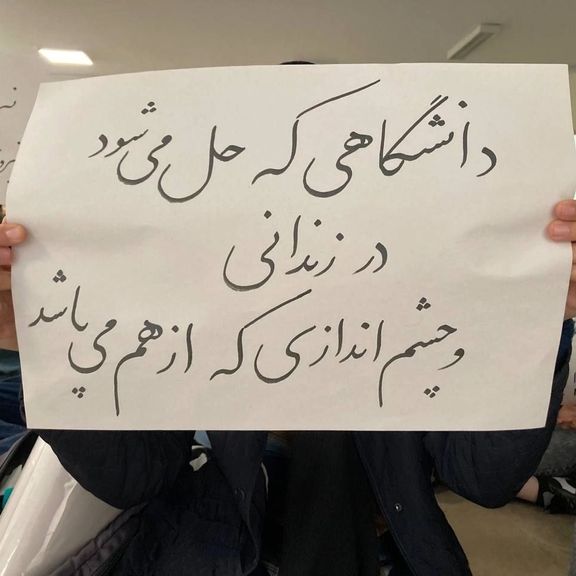 دانشگاهی که حل می‌شود
در زندانی
و چشم اندازی که از هم می‌پاشد